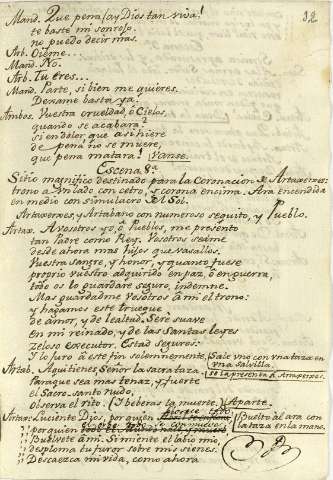 12
Mand. Que pena! (ay Dios tan viva!
te baste mi sonrojo
no puedo decir mas.
Arb. Oieme...
Mand. No.
Arb. Tu eres...
Mand. Parte, si bien me quieres.
Dexame basta ya.
Ambos. Vuestra crueldad, ô Cielos,
quando se acabarà?
si en dolor, que asi hiere
de pena no se muere,
que pena matarà! Vanse.
Escena 8ª
Sitio magnifico destinado para la Coronacion de Artaxerxes:
trono a un lado con cetro, y corona encima. Ara encendida
en medio con simulacro del Sol.
Artaxerxes, y Artabano con numeroso seguito, y Pueblo.
Artax. A vosotros yo, ô Pueblos, me presento
tan Padre como Rey. Vosotros seáme
desde ahora mas hijos que vasallos.
Vuestra sangre, y honor, y quanto fuese
proprio vuestro adquirido en paz, ô en guerra,
todo os lo guardare seguro, indemne.
Mas guardadme vosotros â mi el trono:
y hagamos este trueque
de amor, y de lealtud. Sere suave
en mi reinado, y de las Santas leyes
zeloso executor. Estad seguros:
Y lo juro â este fin solemnemente. Sale uno con una taza en
una salvilla.
Artab. Aqui tienes Señor la sacra taza: se la presenta â Artaxerxes.
Para que sea mas tenaz, y fuerte
el Sacro-santo nudo,
observa el rito. (I beberas la muerte.) Aparte.
Artax. Luciente Dios, por quien
Buelto âl ara con
la taza en la mano.
por quien
Buelvete â mi. Si miente el labio mio,
desploma tu furor sobre mis sienes.
Descaezca mi vida, como ahora